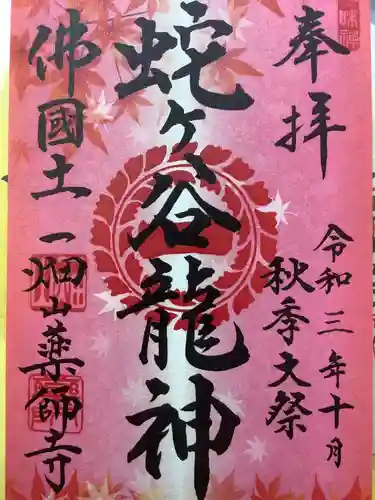 奉拝
令和三年十月
秋季大祭
蛇ヶ谷龍神
佛國土一畑山薬師寺